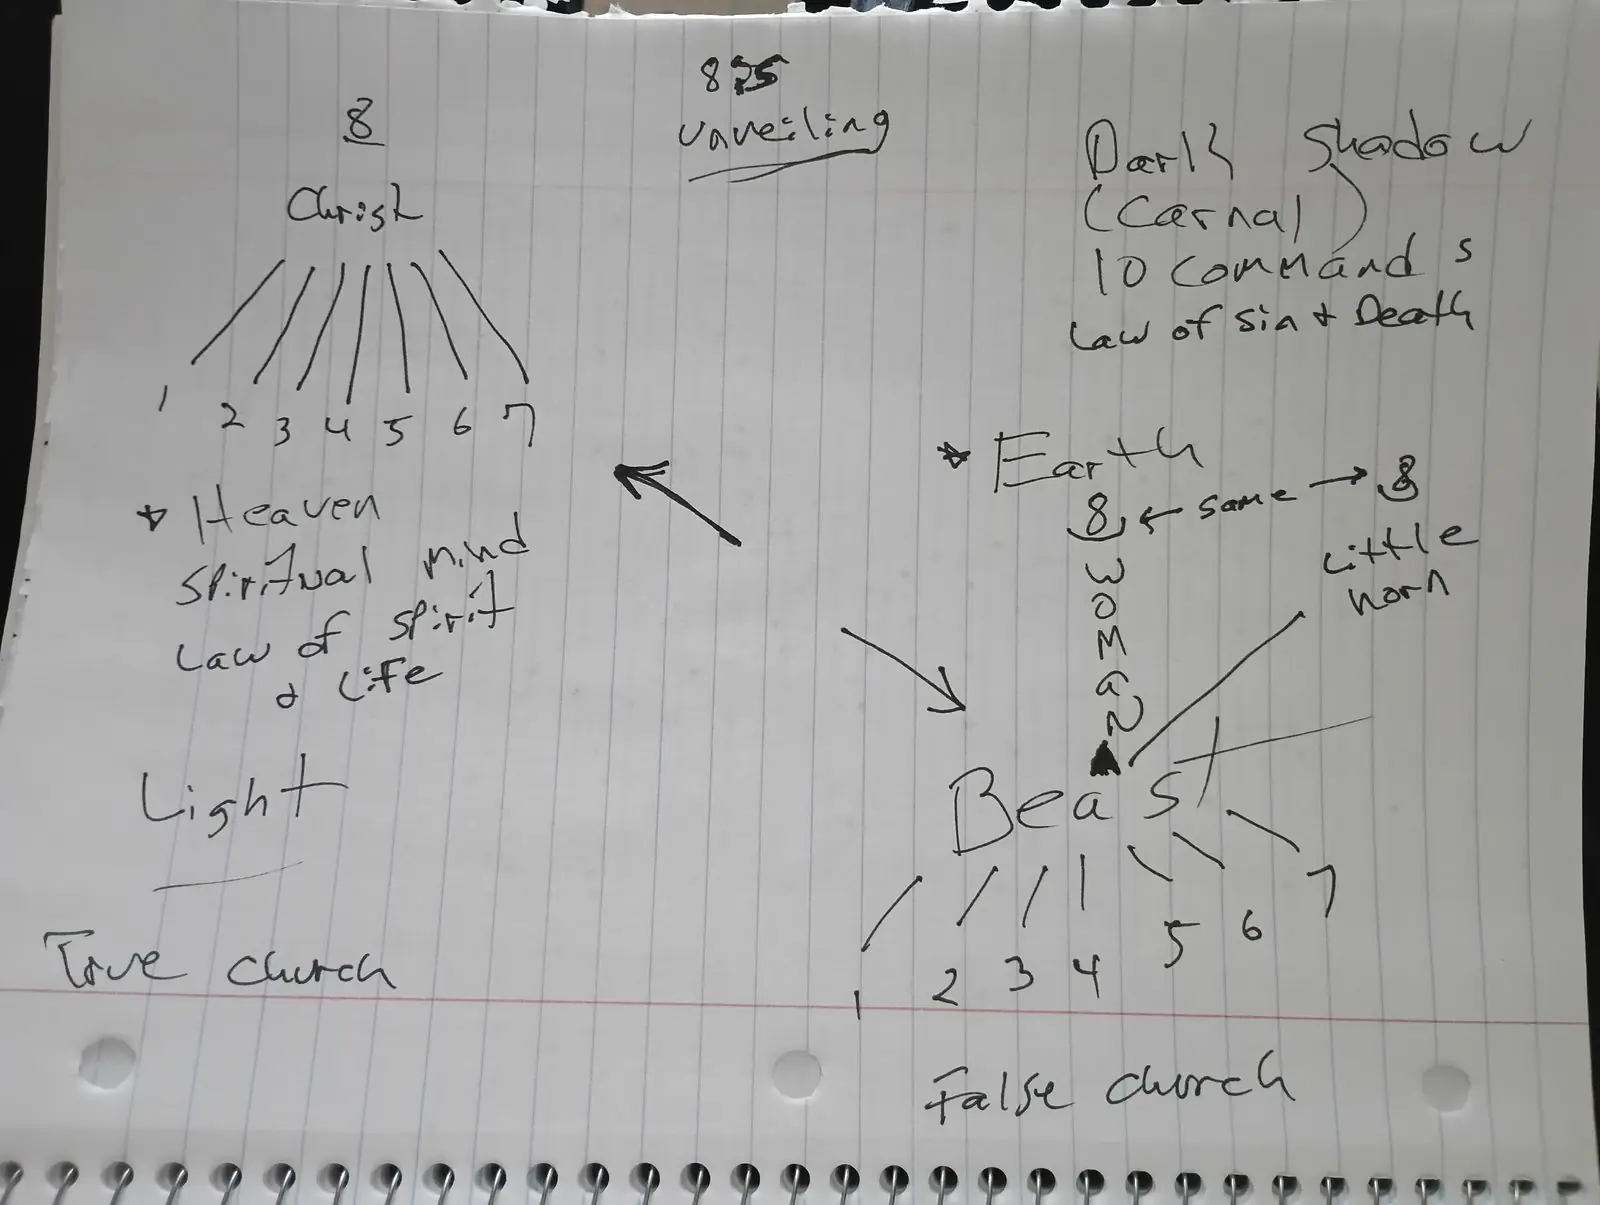 8
Christ
1 2 3 4 5 6 7
* Heaven
Spiritual mind
Law of spirit
& Life
Light
True church
unveiling
Dark Shadow
(Carnal)
10 commands
Law of Sin & Death
* Earth
8 ← same → 8
Little
horn
woman
Beast
1 2 3 4 5 6 7
False church